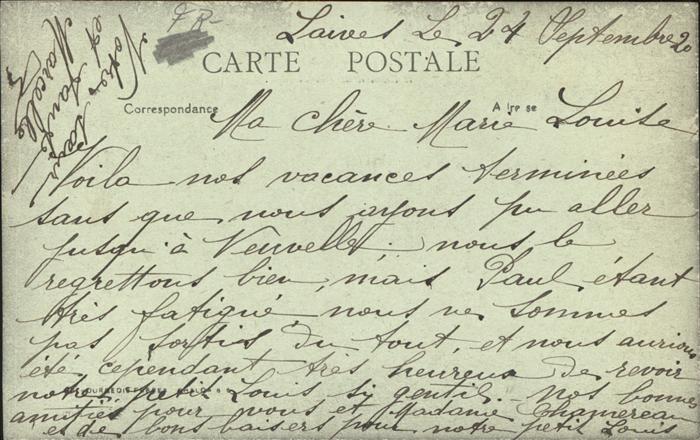 FR-
Laives Le 24 Septembre 20
CARTE POSTALE
Correspondance
Ma chère Marie Louise
Voila nos vacances terminées
sans que nous ayons pu aller
jusqu'à Neuvelle, nous le
regrettons bien, mais Paul étant
très fatigué nous ne sommes
pas sortis du tout, et nous aurions
été cependant très heureux de revoir
notre petit Louis si gentil - nos bonnes
amitiés pour vous et Madame Chamereau
et de bons baisers pour notre petit Louis
Votre
et
Marcelle